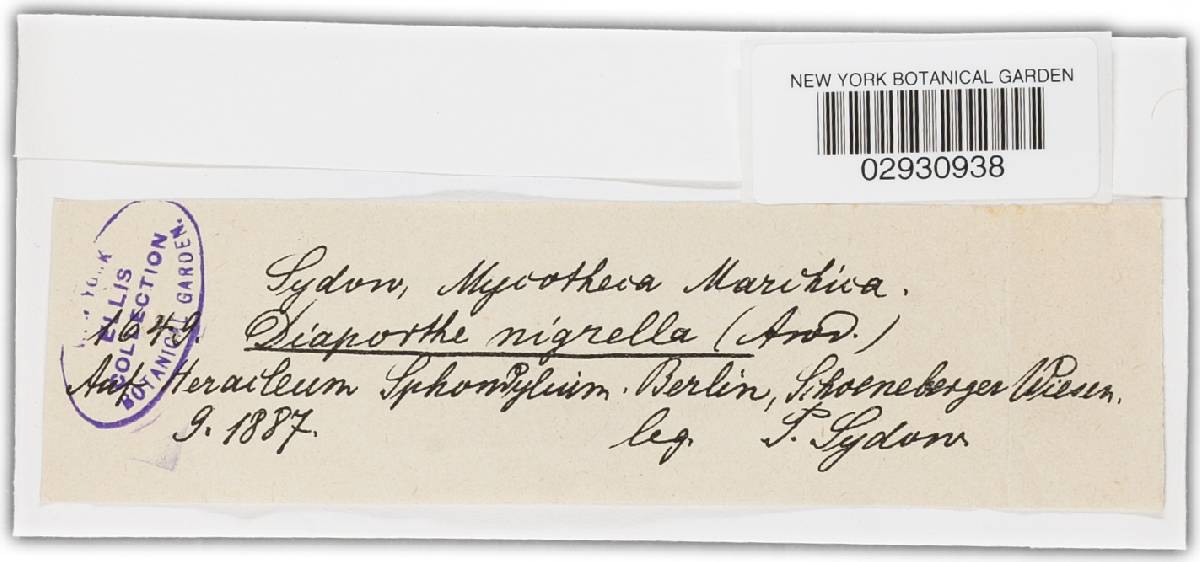 NEW YORK BOTANICAL GARDEN
02930938
YORK
ELLIS
COLLECTION
BOTANICAL GARDEN.
Sydow, Mycotheca Marchica.
1649. Diaporthe nigrella (Awd.)
Auf Heracleum Sphondylium. Berlin, Schoeneberger Wiesen.
9. 1887.
leg. P. Sydow